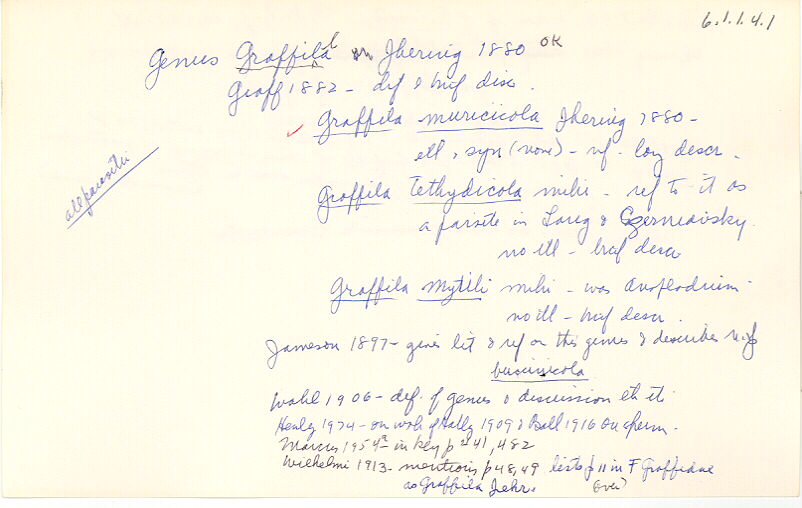 6.1.1.4.1
Genus Graffilla Jhering 1880 OK
Graff 1882 - def & brief disc.
Graffila muricicola Jhering 1880 -
ill, syn (none) - rf. long descr.
all parasitic
Graffila tethydicola mihi - ref to it as
a parsite in Lang & Czerniavsky
no ill - brief descr
Graffila mytili mihi - was Anoplodium -
no ill - brief descr.
Jameson 1897 - gives lit & ref on this genus & describes
buccinicola
Wahl 1906 - def. of genus & discussion
Henley 1974 - on work of Hally 1909 & Ball 1916 on sperm.
Marcus 1954a in key p 441, 482
Wilhelmi 1913 - mentions p 48, 49 lists p 11 in F Graffidae
as Graffila Jehr.
(over)